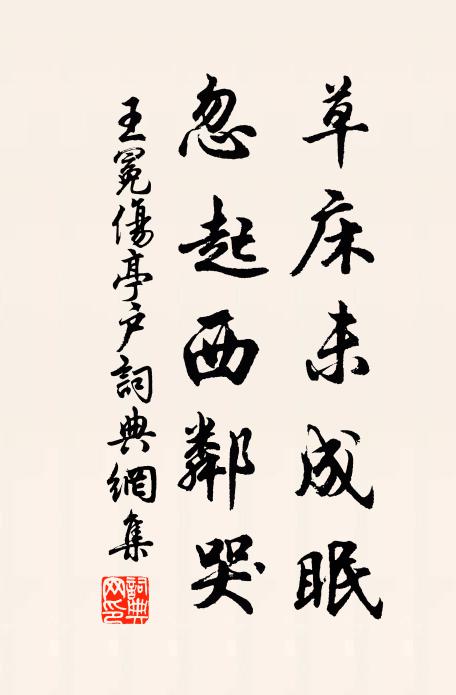 草床未成眠
忽起西鄰哭
王冕傷亭户詞典網集
詞典網印